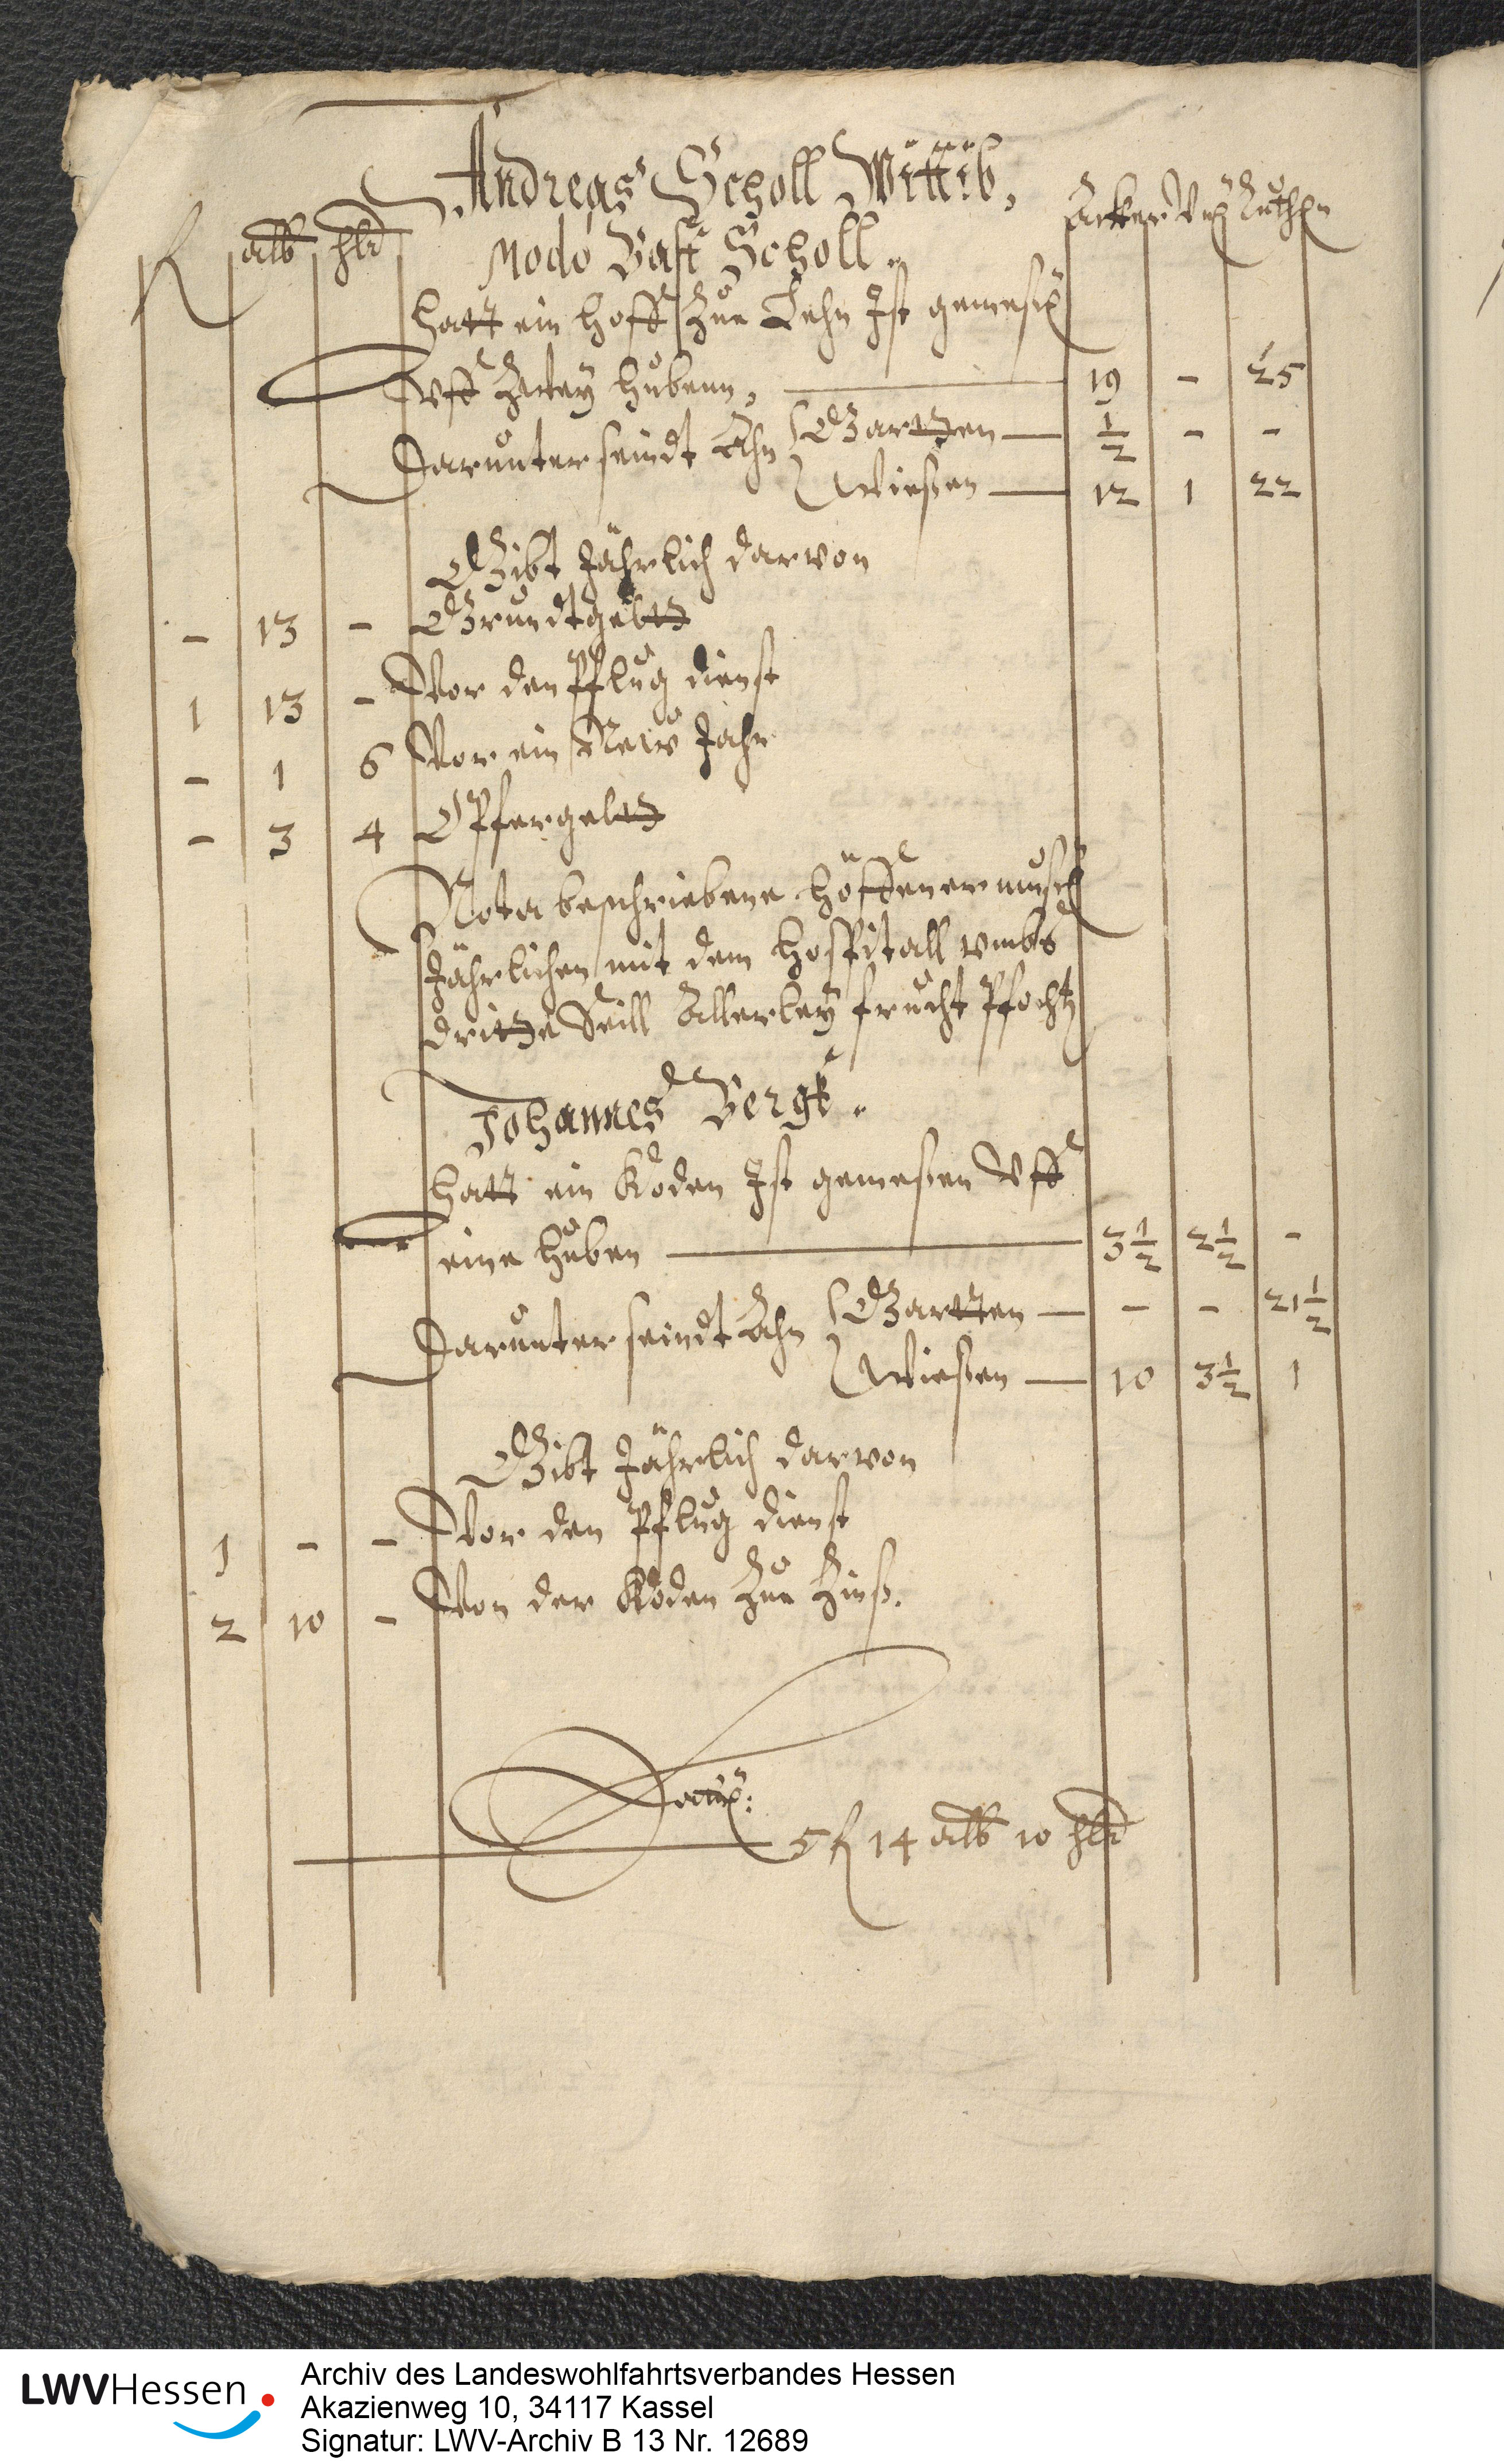 Andreas Scholl Wittib,
fl alb hlr Acker Vrt Ruthen
Modo Bast Scholl.
Hatt ein Hoff zue Lehn Ist gemess
Vff zwey huben, 19 - 25
Darunter seindt Ahn Gartten ½ - -
Wießen 12 1 22
Gibt Jährlich darvon
- 13 - Grundtgeltt
1 13 - Vor den Pflug dienst
- 1 6 Vor ein New Jahr
- 3 4 Opfergeltt
Nota beschriebene Höffener muss
Jährlichen mit dem Hospitall vmbs
dritte Seill Allerley frucht
Johannes Bergk.
hatt ein Köden Ist gemeßen Vff
eine huben 3½ 2½ -
Darunter seindt Ahn Gartten - - 21½
Wießen 10 3½ 1
Gibt Jährlich darvon
1 - - Vor den Pflug dienst
2 10 - Von der Köden zue Zinß.
5 fl 14 alb 10 hlr
LWVHessen
Archiv des Landeswohlfahrtsverbandes Hessen
Akazienweg 10, 34117 Kassel
Signatur: LWV-Archiv B 13 Nr. 12689